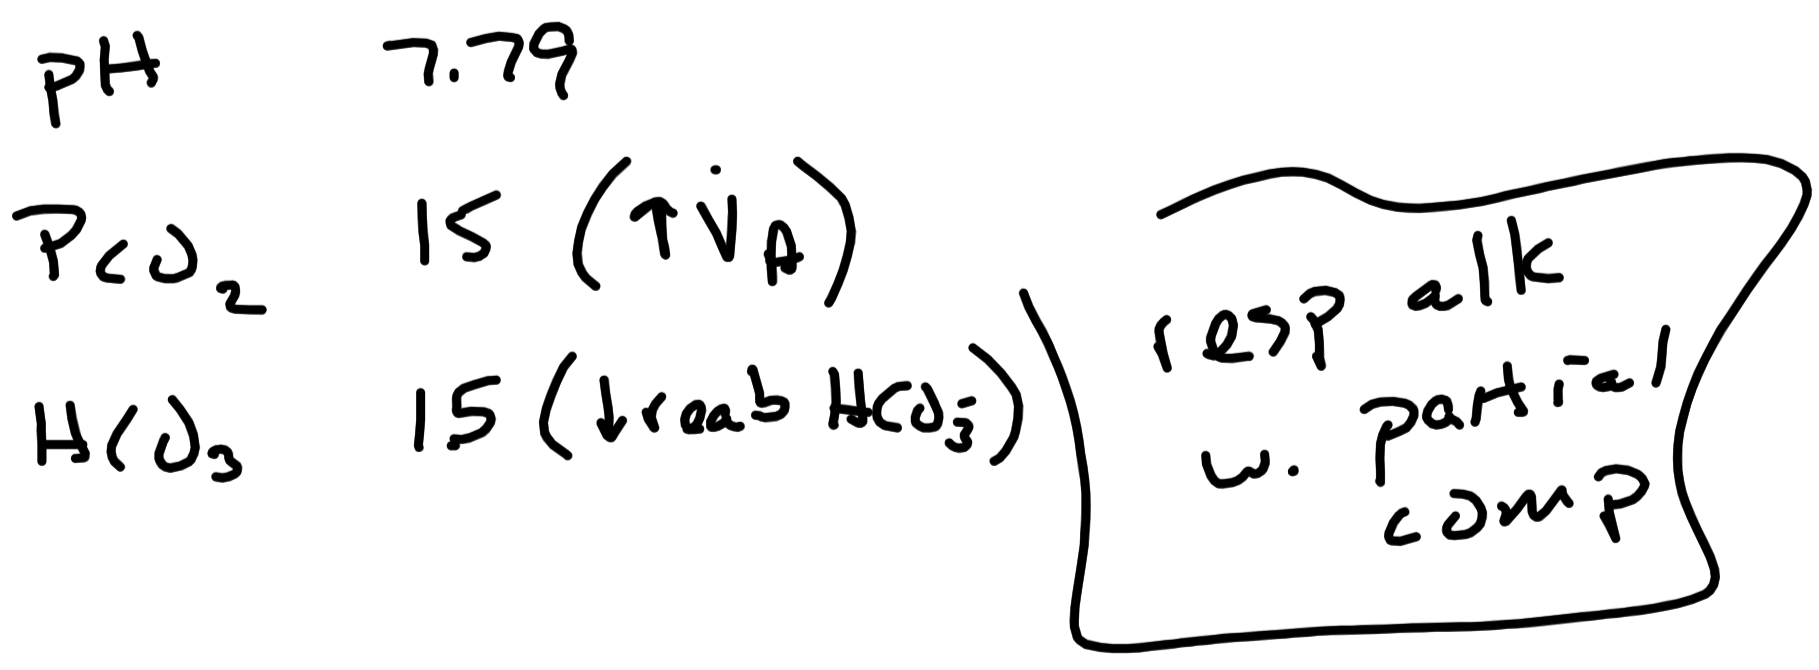 pH 7.79
PCO2 15 (↑V̇A)
HCO3 15 (↓reab HCO3-)
resp alk
w. partial
comp